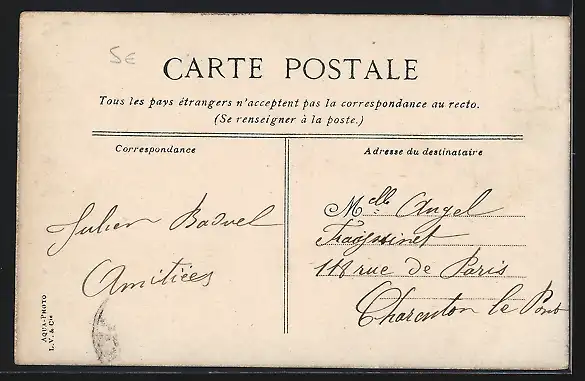 5€
CARTE POSTALE
Tous les pays étrangers n'acceptent pas la correspondance au recto.
(Se renseigner à la poste.)
Correspondance
Julien Baduel
Amitiées
Adresse du destinataire
Melle Angel
Frayssinet
118 rue de Paris
Charenton le Pont
AQUA-PHOTO
L. V. & Cie